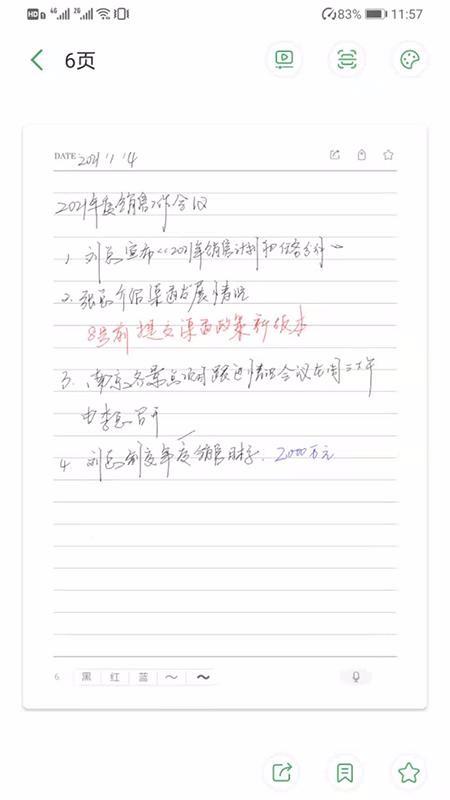 HD 4G 2G 83% 11:57
6页
DATE 2021 1 14
2021年度销售工作会议
1, 刘总宣布《2021年销售计划和任务分件》
2. 张总介绍渠道发展情况
8号前提交渠道政策新版本
3. 南京各景点项目跟进情况会议在周三上午
由李总召开
4 刘总制定年度销售目标. 2000万元
6 黑 红 蓝